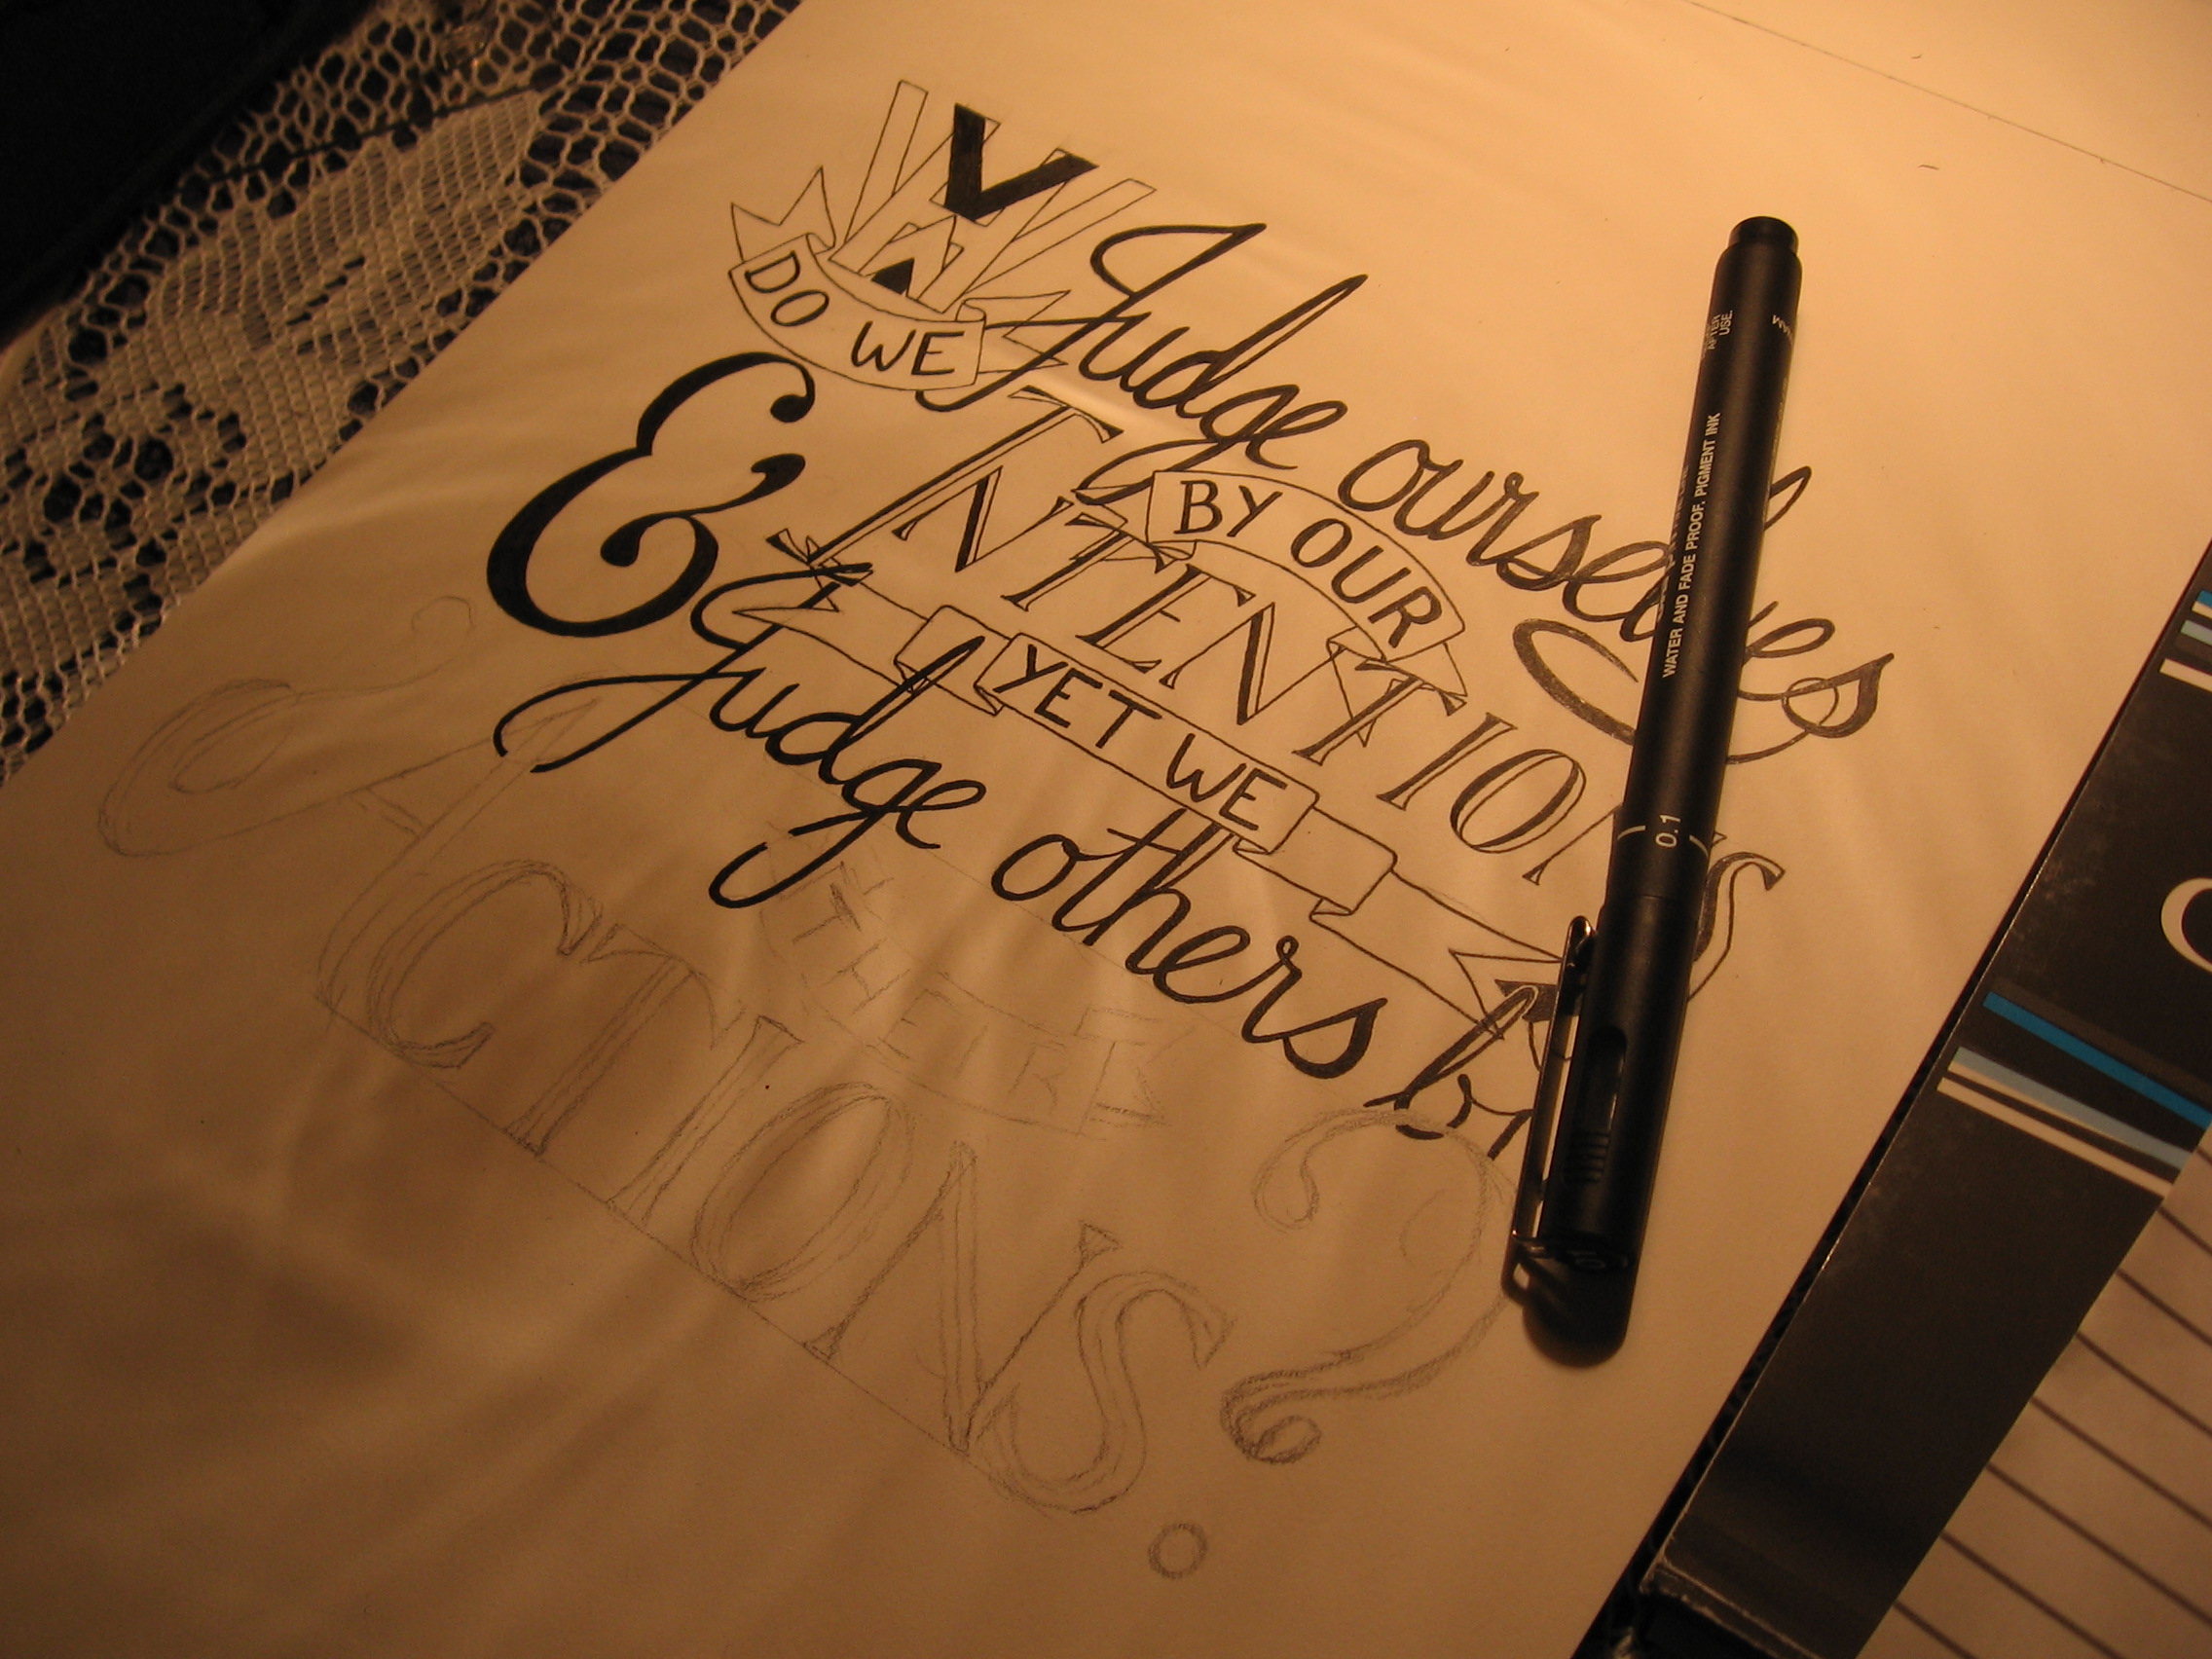 DO WE
Judge ourselves
BY OUR
INTENTIONS
&
YET WE
Judge others by
THEIR
ACTIONS?
WATER AND FADE PROOF, PIGMENT INK
0.1
AFTER
USE